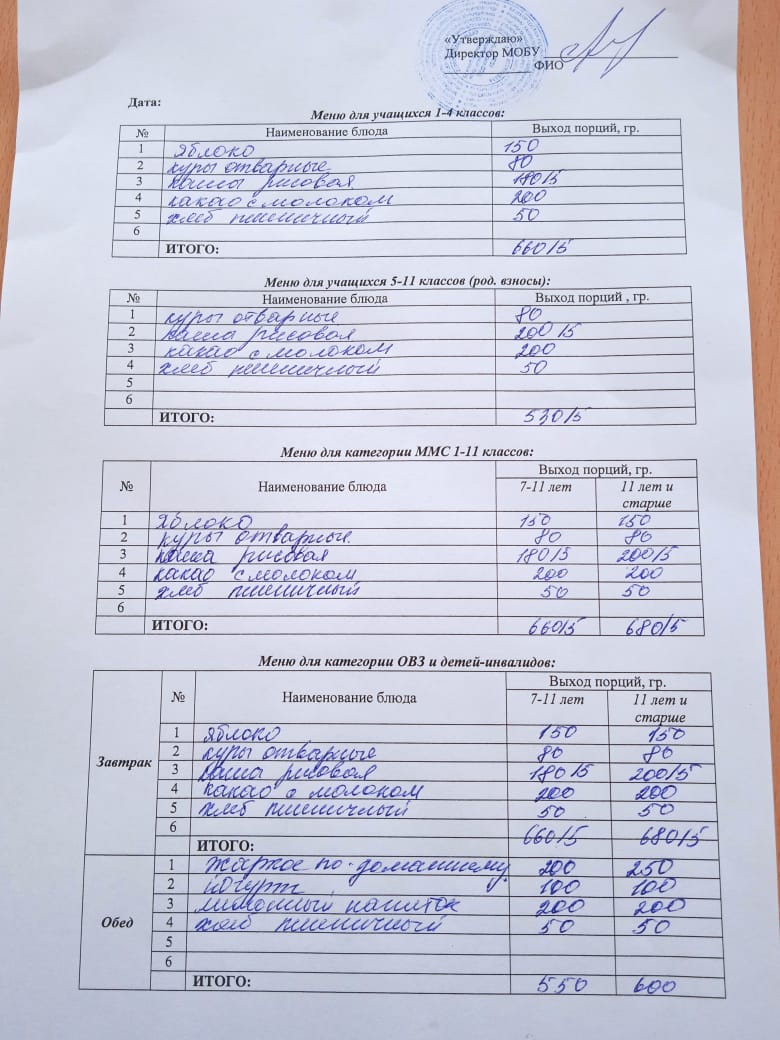 «Утверждаю»
Директор МОБУ
ФИО
Дата:
Меню для учащихся 1-4 классов:
№ Наименование блюда Выход порций, гр.
1 Яблоко 150
2 куры отварные 80
3 каша рисовая 180/5
4 какао с молоком 200
5 хлеб пшеничный 50
6
ИТОГО: 660/5
Меню для учащихся 5-11 классов (род. взносы):
№ Наименование блюда Выход порций , гр.
1 куры отварные 80
2 каша рисовая 200/5
3 какао с молоком 200
4 хлеб пшеничный 50
5
6
ИТОГО: 530/5
Меню для категории ММС 1-11 классов:
№ Наименование блюда Выход порций, гр.
7-11 лет 11 лет и старше
1 яблоко 150 150
2 куры отварные 80 80
3 каша рисовая 180/5 200/5
4 какао с молоком 200 200
5 хлеб пшеничный 50 50
6
ИТОГО: 660/5 680/5
Меню для категории ОВЗ и детей-инвалидов:
№ Наименование блюда Выход порций, гр.
7-11 лет 11 лет и старше
Завтрак
1 яблоко 150 150
2 куры отварные 80 80
3 каша рисовая 180/5 200/5
4 какао с молоком 200 200
5 хлеб пшеничный 50 50
6
ИТОГО: 660/5 680/5
Обед
1 жаркое по-домашнему 200 250
2 йогурт 100 100
3 лимонный напиток 200 200
4 хлеб пшеничный 50 50
5
6
ИТОГО: 550 600